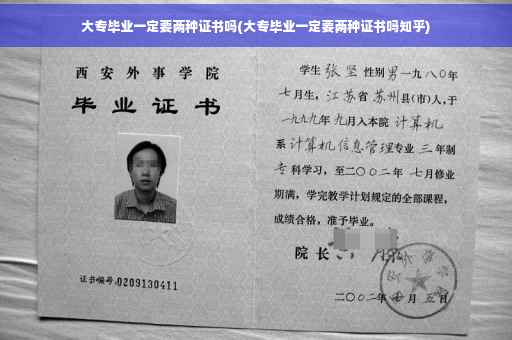 大专毕业一定要两种证书吗(大专毕业一定要两种证书吗知乎)
西安外事学院
毕业证书
证书编号:0209130411
学生张坚性别男一九八〇年
七月生，江苏省苏州县(市)人,于
一九九九年九月入本院计算机
系计算机信息管理专业三年制
专科学习，至二〇〇二年七月修业
期满，学完教学计划规定的全部课程，
成绩合格，准予毕业。
院长
二〇〇二年七月五日